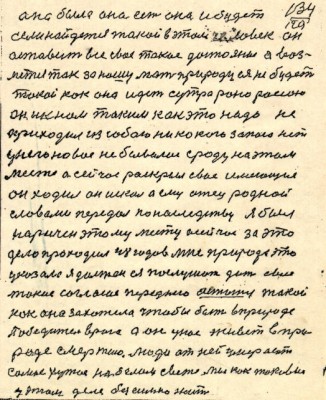 134
29
она была она есть она и будет
сем найдется такой в этом человек он
оставит все свое такое достояния а воз-
метится за нашу мать природу ея не будеть
токой как она идет с утра рано росою
он и к нам таким как это надо не
приходил из собою никокого запаса нет
у него новое не бывалои сроду на этом
месте а сейчас раскрыл свое имеющие
он ходил он искал а ему отец родной
словами передал по наследству я был
наричен этому месту а сейчас за это
дело проходил 28 годов мне природа это
указала я должен ея послушать дать свое
такие согласие передней остатся такой
кок она захотела чтобы быть в природе
Победител врага а он у нас живет в при
роде смертию, люди от ней умерают
самое худое на белом свете мы как таковые
у этом деле безсильно жить